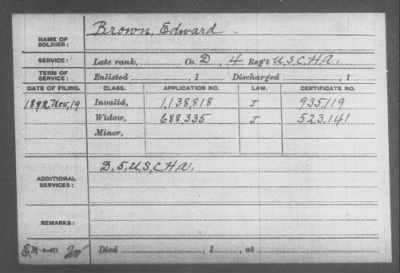 NAME OF SOLDIER: Brown, Edward
SERVICE: Late rank, Co. D, 4 Reg't U.S.C.H.A.
TERM OF SERVICE: Enlisted , 1 Discharged , 1
DATE OF FILING. CLASS. APPLICATION NO. LAW. CERTIFICATE NO.
1892 Nov, 19 Invalid, 1,138,818 J 935119
Widow, 688,335 J 523.141
Minor,
ADDITIONAL SERVICES: D, 5, U.S.C.H.A.
REMARKS:
Died , 1 , at